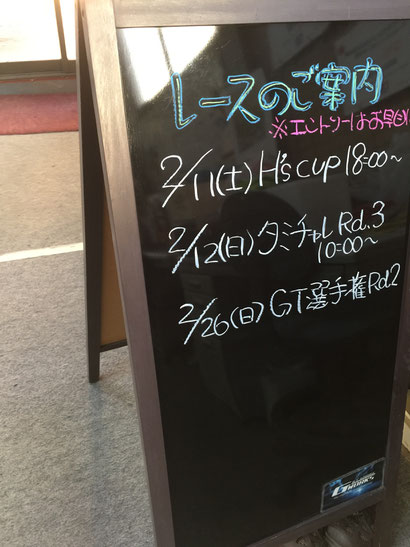 レースのご案内
※エントリーはお早め
2/11(土) H's cup 18:00～
2/12(日) タミチャレ Rd.3
10:00～
2/26(日) GT選手権 Rd.2